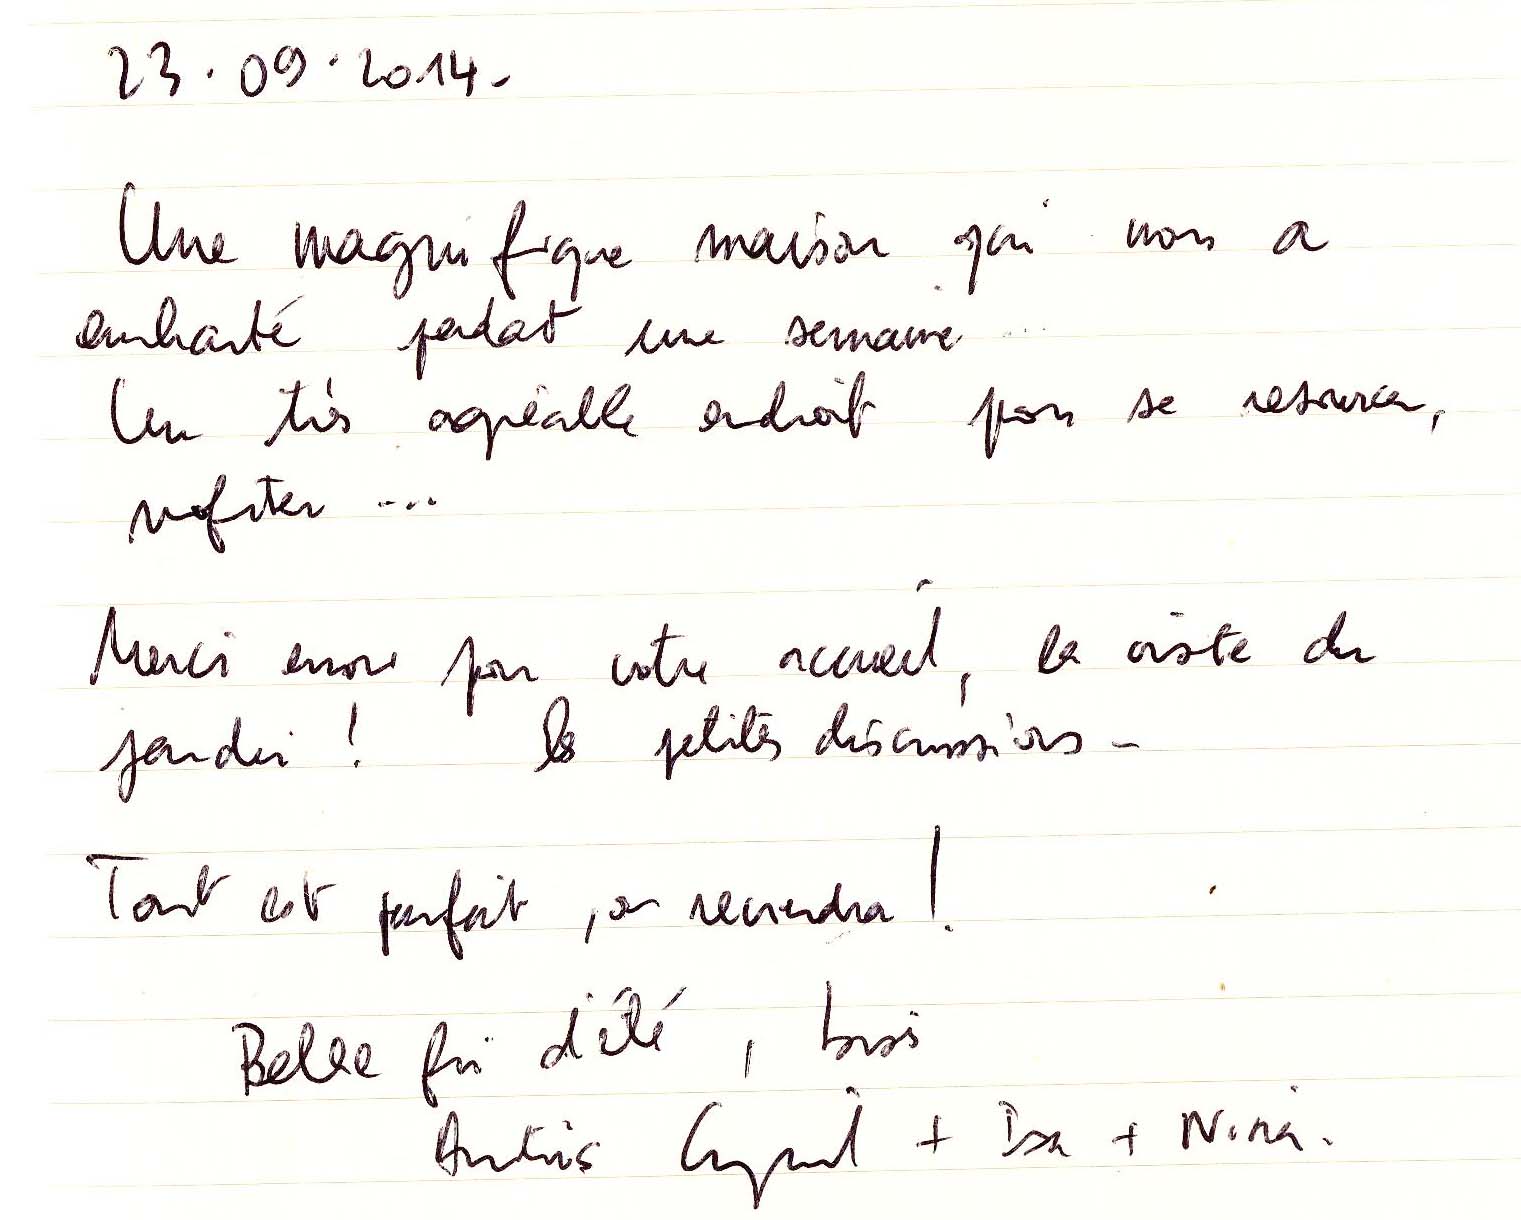 23.09.2014.
Une magnifique maison qui nous a
enchanté pendant une semaine
Un très agréable endroit pour se resourcer,
profiter ...
Merci encore pour votre accueil, la visite du
jardin ! les petites discussions -
Tout est parfait, on reviendra !
Belle fin d'été, bises
Cyril + Isa + Nina.